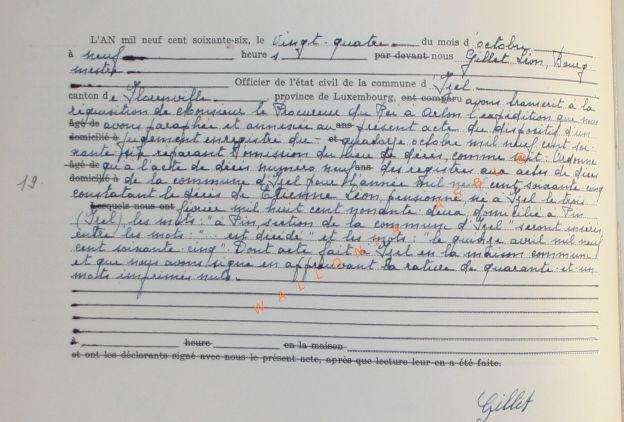 L'AN mil neuf cent soixante-six, le vingt-quatre du mois d'octobre
à neuf heures par devant nous Gillet Léon, Bourg-
mestre
Officier de l'état civil de la commune d'Izel
canton de Florenville province de Luxembourg, ont comparu avons transcrit à la
réquisition de Monsieur le Procureur du Roi à Arlon l'expédition que nous
âgé de avons paraphée et annexée au ans présent acte du dispositif d'un
domicilié à jugement enregistré du et quatorze octobre mil neuf cent soi-
xante-six réparant l'omission du lieu de décès, comme suit: Ordonne
âgé de qu'à l'acte de décès numéro neuf ans des registres aux actes de décès
19
domicilié à de la commune d'Izel pour l'année mil neuf cent soixante-cinq
constatant le décès de Etienne Léon, pensionné né à Izel le trois
Lesquels nous ont février mil huit cent nonante-deux domicilié à Pin
(Izel) les mots: "à Pin section de la commune d'Izel" seront insérés
entre les mots: "... est décédé" et les mots: "le quinze avril mil neuf
cent soixante-cinq". Dont acte fait à Izel en la maison commune
et que nous avons signé en approuvant la rature de quarante-et-un
mots imprimés nuls.
à heure en la maison
et ont les déclarants signé avec nous le présent acte, après que lecture leur en a été faite.
Gillet